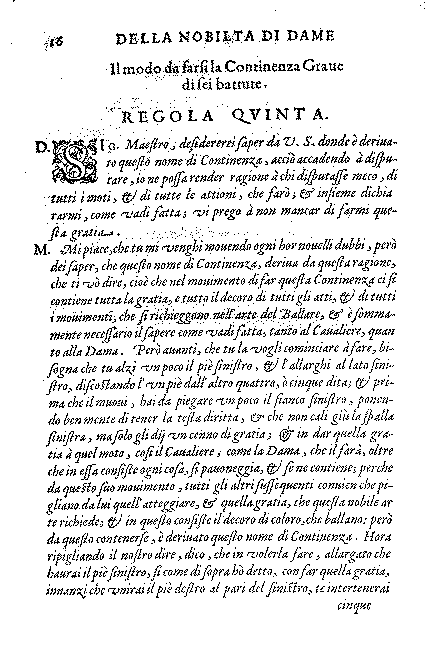 16 DELLA NOBILTA DI DAME
Il modo da farsi la Continenza Graue
di sei battute.
REGOLA QVINTA.
D. SIg. Maestro, desidererei saper da V. S. donde è deriua-
to questo nome di Continenza, acciò accadendo à dispu-
tare, io ne possa render ragione à chi disputasse meco, di
tutti i moti, & di tutte le attioni, che farò; & insieme dichia
rarmi, come vadi fatta; vi prego à non mancar di farmi que-
sta gratia.
M. Mi piace, che tu mi venghi mouendo ogni hor nouelli dubbi, però
dei saper, che questo nome di Continenza, deriua da questa ragione,
che ti vò dire, cioè che nel mouimento di far questa Continenza ci si
contiene tutta la gratia, e tutto il decoro di tutti gli atti, & di tutti
i mouimenti, che si richieggono nell'arte del Ballare, & è somma-
mente necessario il sapere come vadi fatta, tanto al Caualiere, quan
to alla Dama. Però auanti, che tu la vogli cominciare à fare, bi-
sogna che tu alzi vn poco il piè sinistro, & l'allarghi al lato sini-
stro, discostando l'vn piè dall'altro quattro, ò cinque dita; & pri-
ma che il muoui, hai da piegare vn poco il fianco sinistro, ponen-
do ben mente di tener la testa diritta, & che non cali giù la spalla
sinistra, ma solo gli dij vn cenno di gratia; & in dar quella gra-
tia à quel moto, così il Caualiere, come la Dama, che il farà, oltre
che in essa consiste ogni cosa, si pauoneggia, & se ne contiene; perche
da questo suo mouimento, tutti gli altri sussequenti conuien che pi-
gliano da lui quell'atteggiare, & quella gratia, che questa nobile ar
te richiede; & in questo consiste il decoro di coloro, che ballano: però
da questo contenerse, è deriuato questo nome di Continenza. Hora
ripigliando il nostro dire, dico, che in volerla fare, allargato che
haurai il piè sinistro, si come di sopra hò detto, con far quella gratia,
innanzi che vnirai il piè destro al pari del sinistro, te intertenerai
cinque